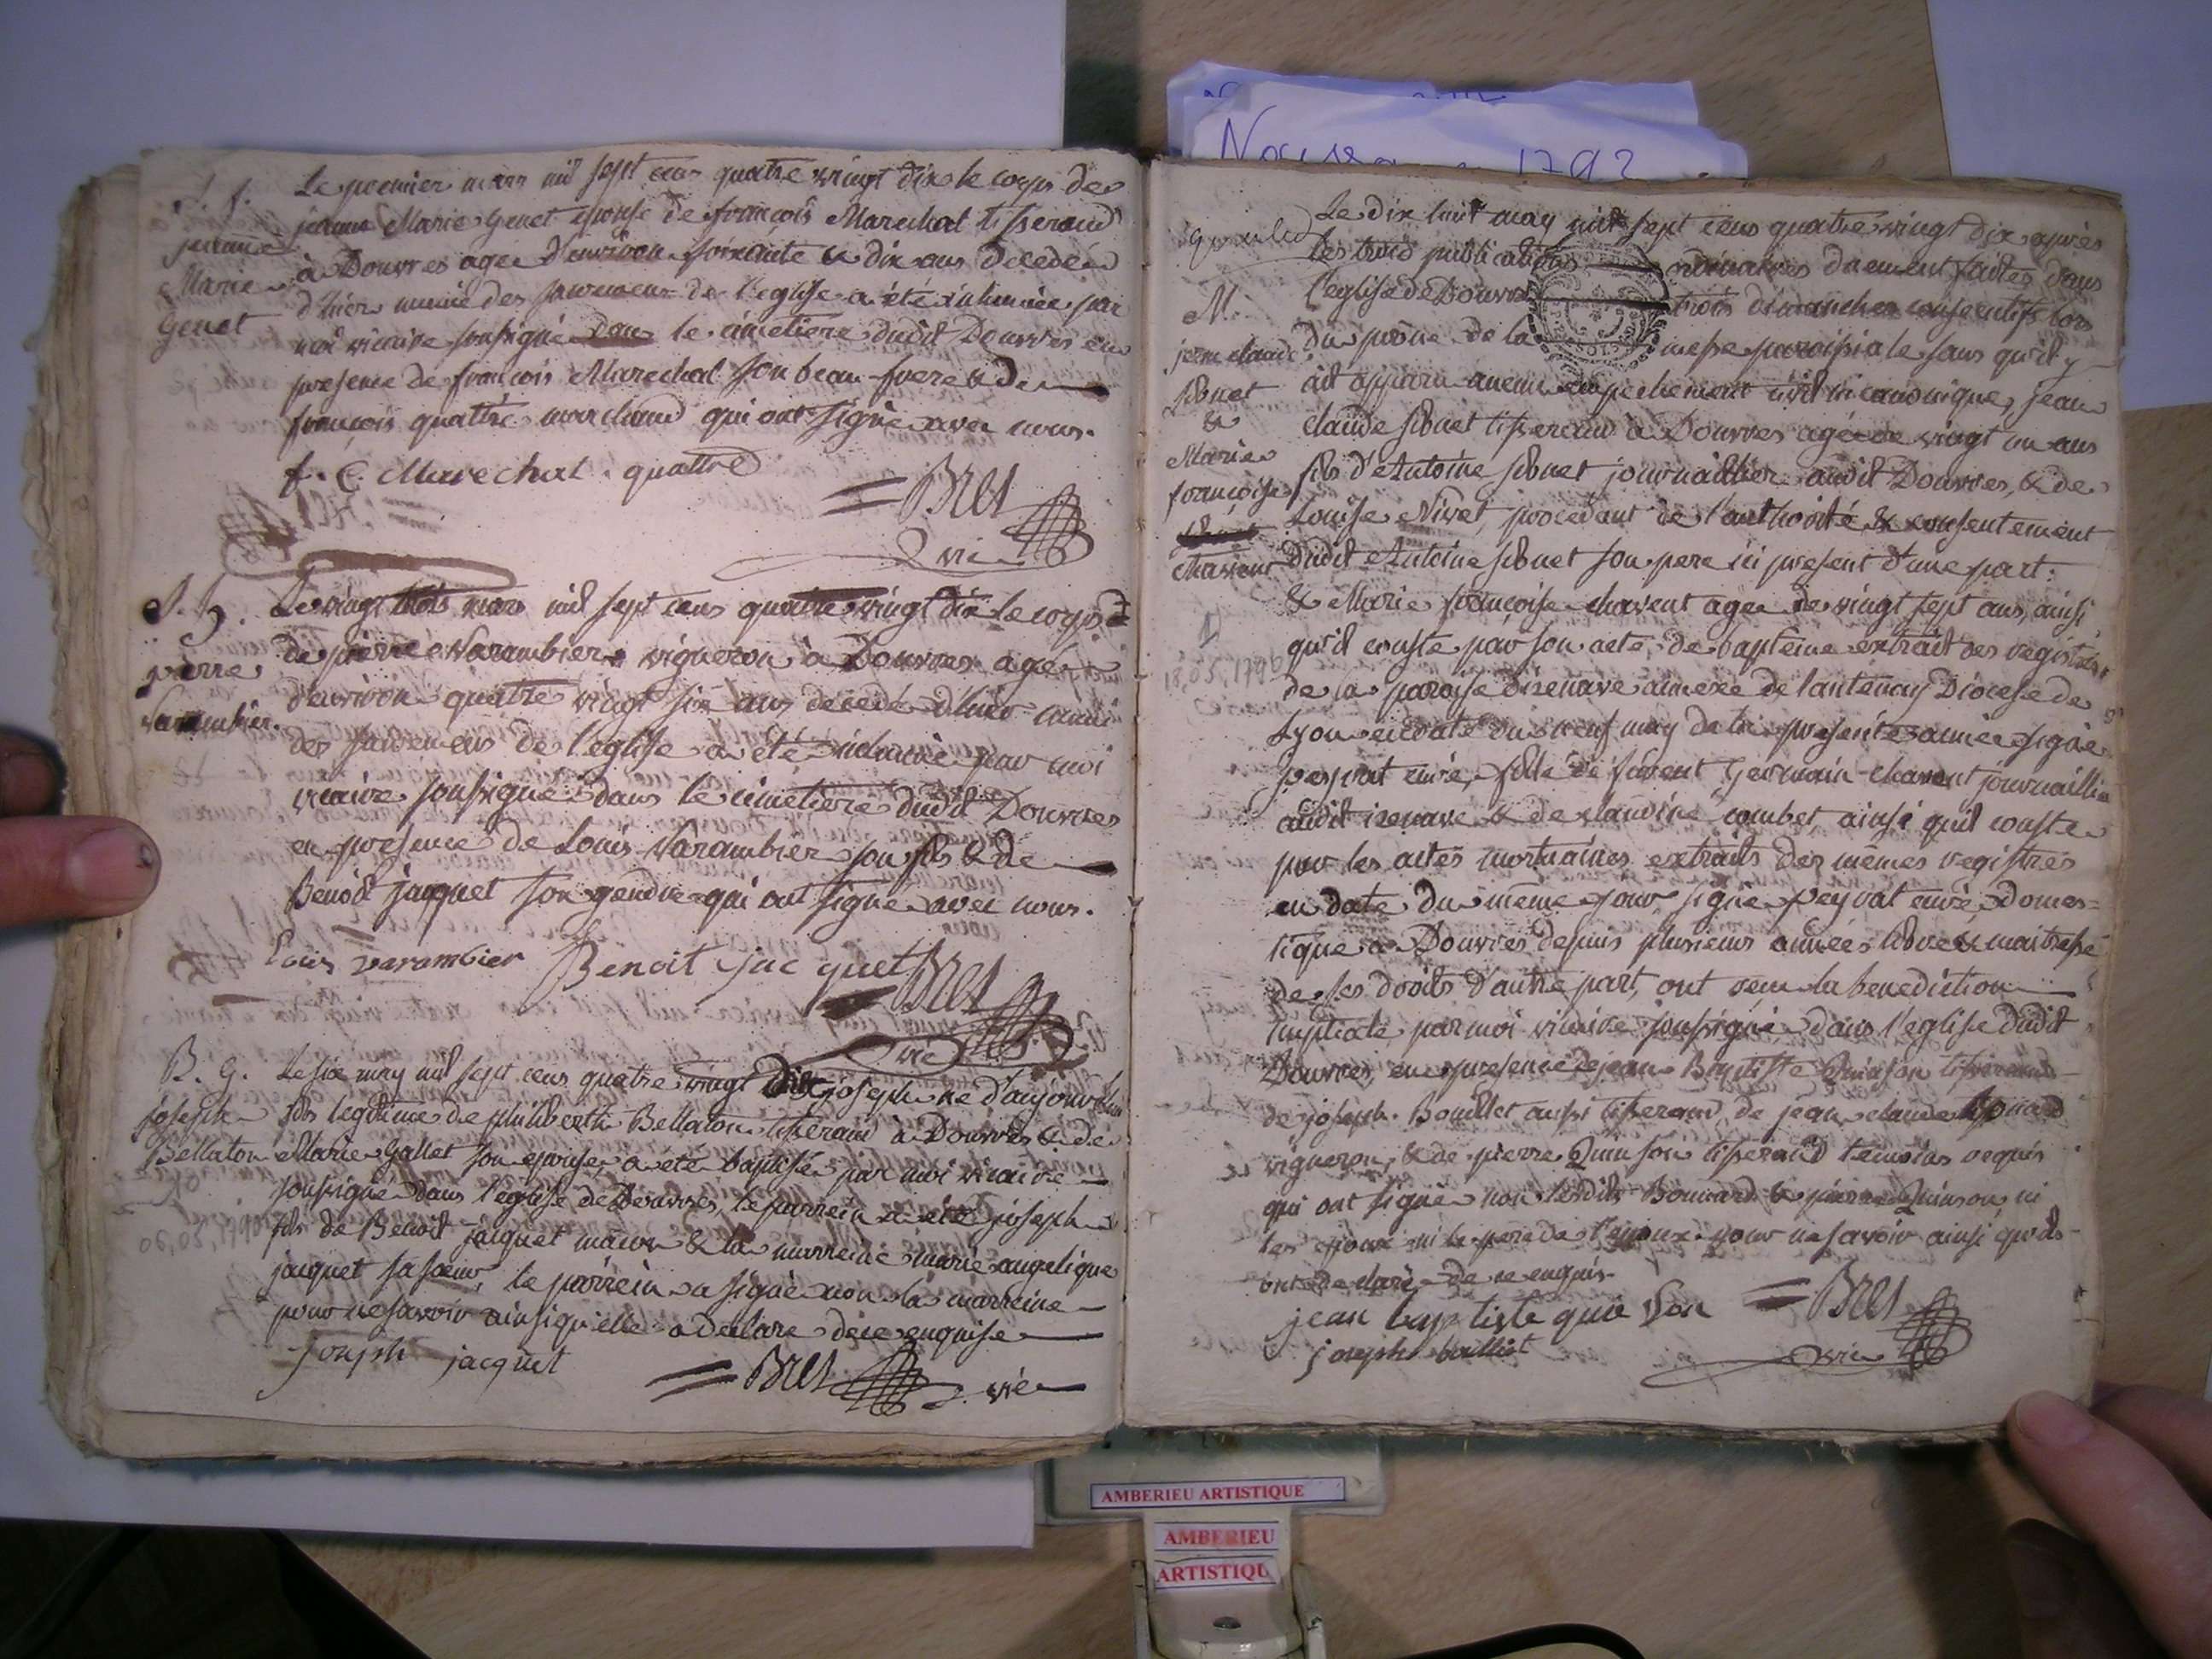 S. f.
jeanne
Marie
Genet
Le premier mars mil sept cens quatre vingt dix le corps de
jeanne Marie Genet epouse de françois Marechal tisserand
à Douvres agée d'environ soixante & dix ans decedée
d'hier munie des sacremens de l'eglise a été inhumée par
moi vicaire soussigné dans le cimetiere dudit Douvres en
presence de françois Marechal son beau-frere & de
françois quattre marchand qui ont signé avec nous.
f. C. Marechal. quattre
= Bret
vic
S. h.
pierre
Varambier.
Le vingt trois mars mil sept cens quatre vingt dix le corps
de pierre Varambier vigneron à Douvres agé
d'environ quatre vingt six ans decedé d'hier muni
des sacremens de l'eglise a été inhumé par moi
vicaire soussigné dans le cimetiere dudit Douvres
en presence de Louis Varambier son fils & de
Benoit jacquet son gendre qui ont signé avec nous.
Louis varambier Benoit jacquet = Bret
vic
B. G.
joseph
Bellaton
Le six may mil sept cens quatre vingt dix joseph né d'aujourd'hui
fils legitime de philiberth Bellaton tisserand à Douvres & de
Marie Gallet son epouse, a été baptisé par moi vicaire
soussigné dans l'eglise de Douvres, le parrein a été joseph
fils de Benoit jacquet & la marreine marie angelique
jacquet sa soeur, le parrein a signé non la marreine
pour ne savoir ainsi qu'elle a declaré de ce enquise
Joseph jacquet
= Bret vic
M.
jean claude
sibuet
&
Marie
françoise
chavent
18.05.1790
Le dix huit may mil sept cens quatre vingt dix après
les trois publications ordinaires duement faites dans
l'eglise de Douvres trois dimanches consecutifs lors
du prône de la messe paroissiale sans qu'il y
ait apparu aucun empechement civil ni canonique, jean
claude sibuet tisserand à Douvres agé de vingt un ans
fils d'Antoine sibuet journaillier audit Douvres, & de
Louise Nivet, procedant de l'authorité & consentement
dudit Antoine sibuet son pere ici present d'une part:
& Marie françoise chavent agée de vingt sept ans, ainsi
qu'il conste par son acte de bapteme extrait des registres
de la paroisse d'izenave annexe de lantenay Diocese de
Lyon en date du neuf may de la presente année signé
peyrat curé, fille de feu Germain chavent journaillier
audit izenave & de claudine combet, ainsi qu'il conste
par les actes mortuaires extraits des mêmes registres
en date du même jour signé peyrat curé, domes-
tique à Douvres depuis plusieurs années libre & maitresse
de ses droits d'autre part, ont reçu la benediction
nuptiale par moi vicaire soussigné dans l'eglise dudit
Douvres, en presence de jean Baptiste Quinson tisserand
de joseph Bouillet aussi tisserand, de jean claude Bonnard
vigneron, & de pierre Quinson tisserand temoins requis
qui ont signé non lesdits Bonnard & pierre Quinson, ni
les epoux ni le pere de l'epoux pour ne savoir ainsi qu'ils
ont declaré de ce enquis.
jean baptiste quinson = Bret
joseph bouillet vic
1792
AMBERIEU ARTISTIQUE
AMBERIEU
ARTISTIQU